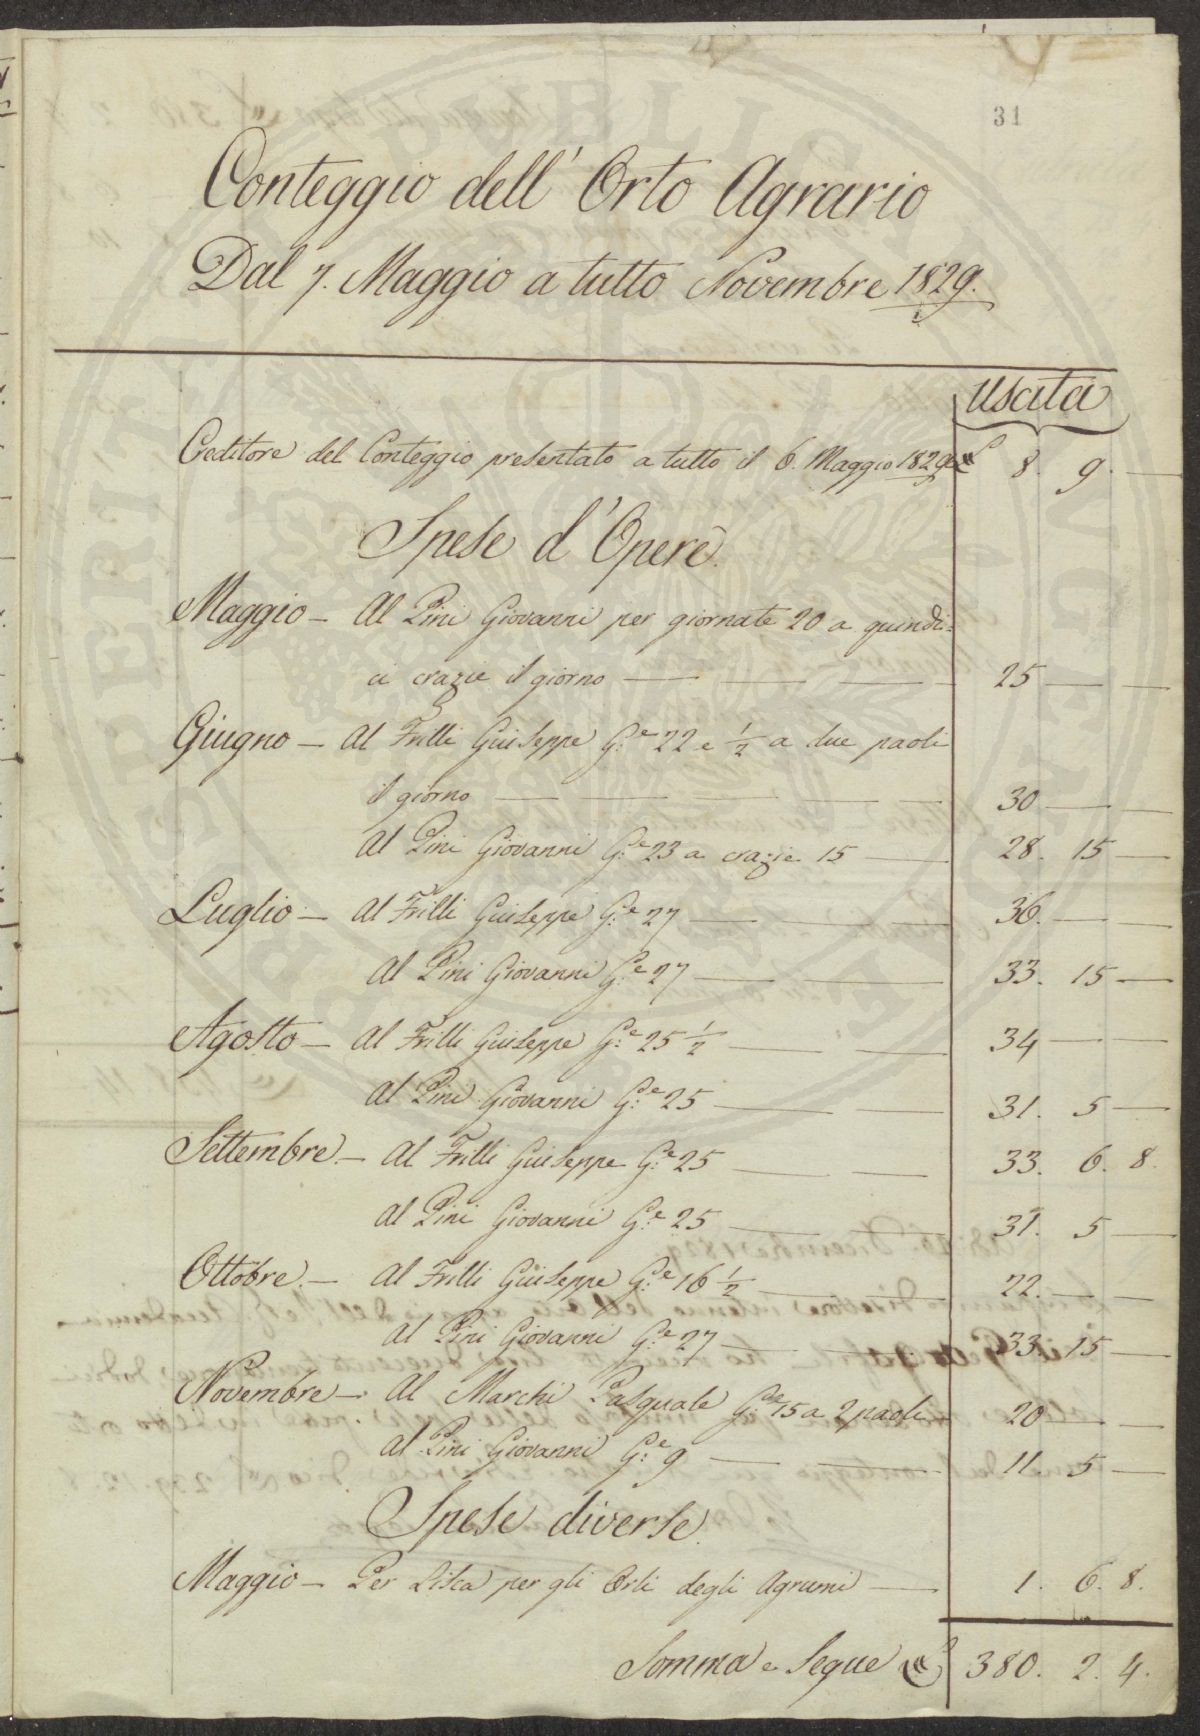 31
Conteggio dell' Orto Agrario
Dal 7. Maggio a tutto Novembre 1829.
Uscita
Creditore del Conteggio presentato a tutto il 6. Maggio 1829 £ 8. 9. —
Spese d'Opere.
Maggio — Al Pini Giovanni per giornate 20 a quindi=
ci crazie il giorno — 25 — —
Giugno — Al Frilli Giuseppe G.e 22 e 1/2 a due paoli
il giorno — 30 — —
Al Pini Giovanni G.e 23 a crazie 15 — 28. 15 —
Luglio — Al Frilli Giuseppe G.e 27 — 36. — —
Al Pini Giovanni G.e 27 — 33. 15 —
Agosto — Al Frilli Giuseppe G.e 25 1/2 — 34 — —
Al Pini Giovanni G.e 25 — 31. 5 —
Settembre — Al Frilli Giuseppe G.e 25 — 33. 6. 8.
Al Pini Giovanni G.e 25 — 31. 5 —
Ottobre — Al Frilli Giuseppe G.e 16 1/2 — 22. — —
Al Pini Giovanni G.e 27 — 33. 15 —
Novembre — Al Marchi Pasquale G.e 15 a 2 paoli 20 — —
Al Pini Giovanni G.e 9 — 11. 5 —
Spese diverse.
Maggio — Per Lisca per gli Orti degli Agrumi — 1. 6. 8.
Somma e Segue £ 380. 2. 4.